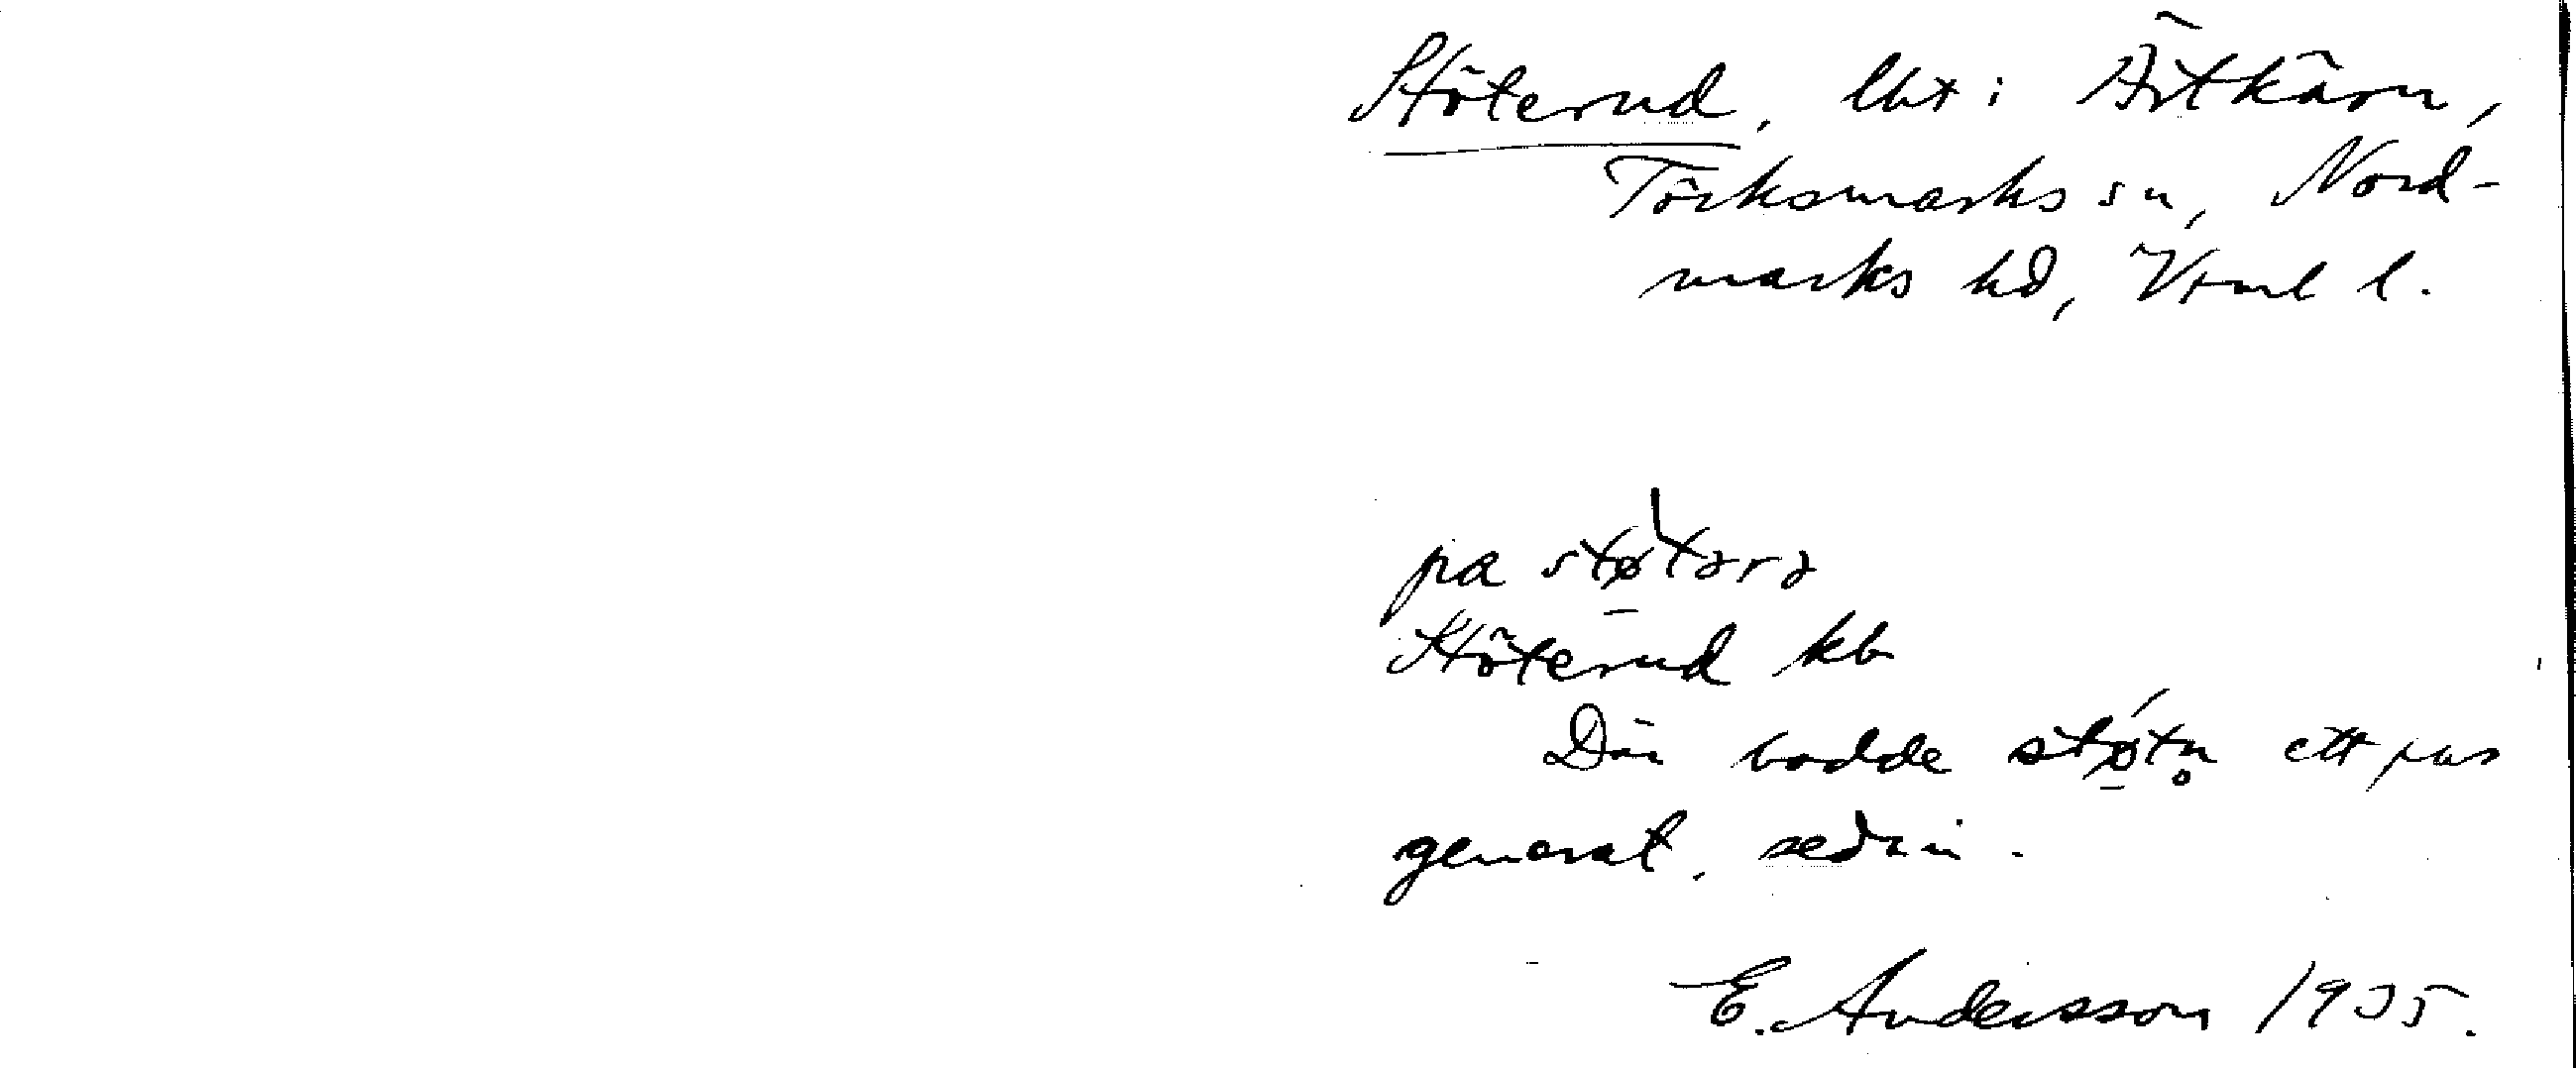 Stöterud, lht i Örtkärn,
Töcksmarks sn, Nord-
marks hd, Vrml l.
pa støtərə
Stöterud kb
Där bodde støtn̥ ett par
generat. sedan.
E. Andersson 1935.